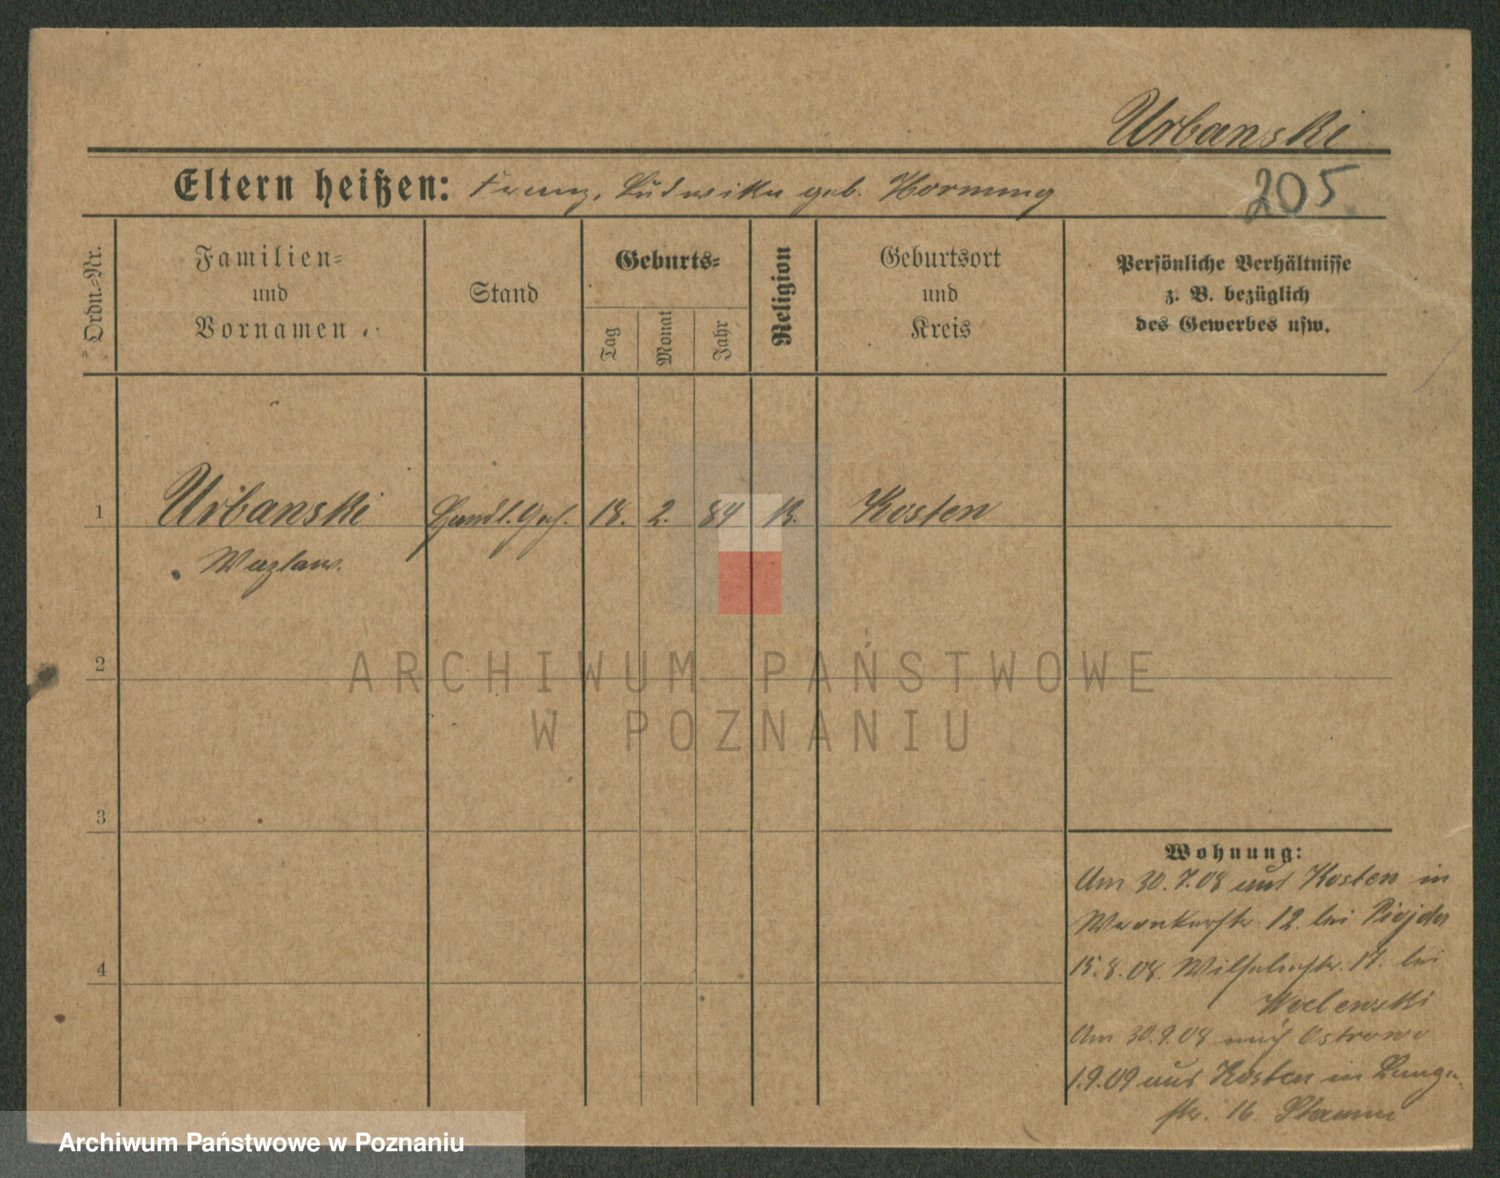 Urbanski
Eltern heißen: Franz, Ludwika geb. Hornung
205.
Ordn.-Nr.
Familien-
und
Vornamen
Stand
Geburts-
Tag
Monat
Jahr
Religion
Geburtsort
und
Kreis
Persönliche Verhältnisse
z. B. bezüglich
des Gewerbes usw.
1 Urbanski Handl. Geh. 18. 2. 84 K. Kosten
Wazlaw.
2
ARCHIWUM PAŃSTWOWE
W POZNANIU
3
Wohnung:
Am 30.7.08 aus Kosten in
Wronkerstr. 12. bei
15.8.08. Wilhelmstr. 17. bei
4
Am 30.9.08 nach Ostrowo
1.9.09 aus Kosten in Lange-
str. 16. Stamm
Archiwum Państwowe w Poznaniu